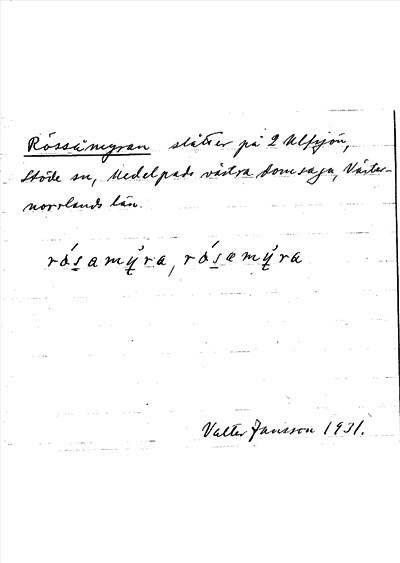 Rössåmyran slåtter på 2 Ulfsjön,
Stöde sn, Medelpads västra domsaga, Väster-
norrlands län.
rósamýra, rósæmýra
Valter Jansson 1931.